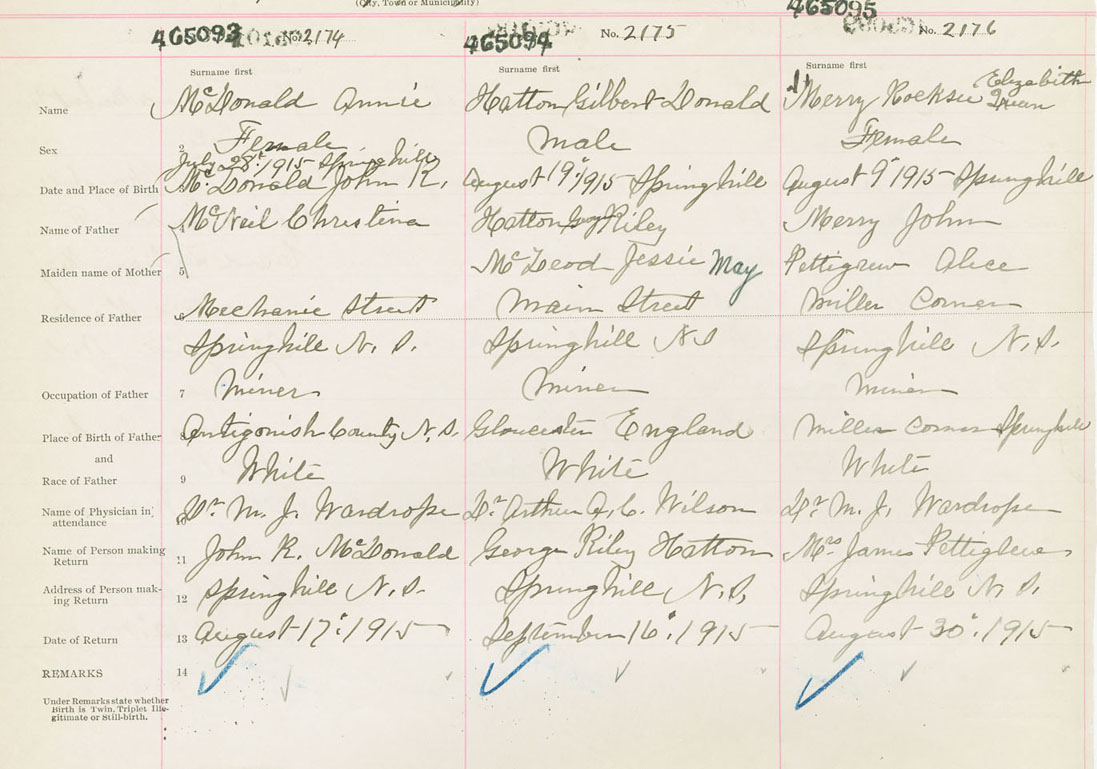 (City, Town or Municipality)
465093 No. 2174 465094 No. 2175 465095 No. 2176
Surname first Surname first Surname first
Name McDonald Annie Hatton Gilbert Donald Merry Elizabeth
Sex 2 Female Male Female
July 28", 1915 Springhill
Date and Place of Birth McDonald John R. August 19" 1915 Springhill August 9" 1915 Springhill
Name of Father 4 McNeil Christina Hatton Riley Merry John
Maiden name of Mother 5 McLeod Jessie May Pettigrew Alice
Residence of Father 6 Mechanic Street Main Street Miller Corner
Springhill N. S. Springhill N S Springhill N. S.
Occupation of Father 7 Miner Miner Miner
Place of Birth of Father 8 Antigonish County N. S. Gloucester England Miller Corner Springhill
and
Race of Father 9 White White White
Name of Physician in attendance 10 Dr. M. J. Wardrope Dr. Arthur A. C. Wilson Dr. M. J. Wardrope
Name of Person making Return 11 John R. McDonald George Riley Hatton Mrs James Pettigrew
Address of Person making Return 12 Springhill N. S. Springhill N. S. Springhill N. S.
Date of Return 13 August 17", 1915 September 16", 1915 August 30", 1915
REMARKS 14
Under Remarks state whether
Birth is Twin, Triplet Ille-
gitimate or Still-birth.